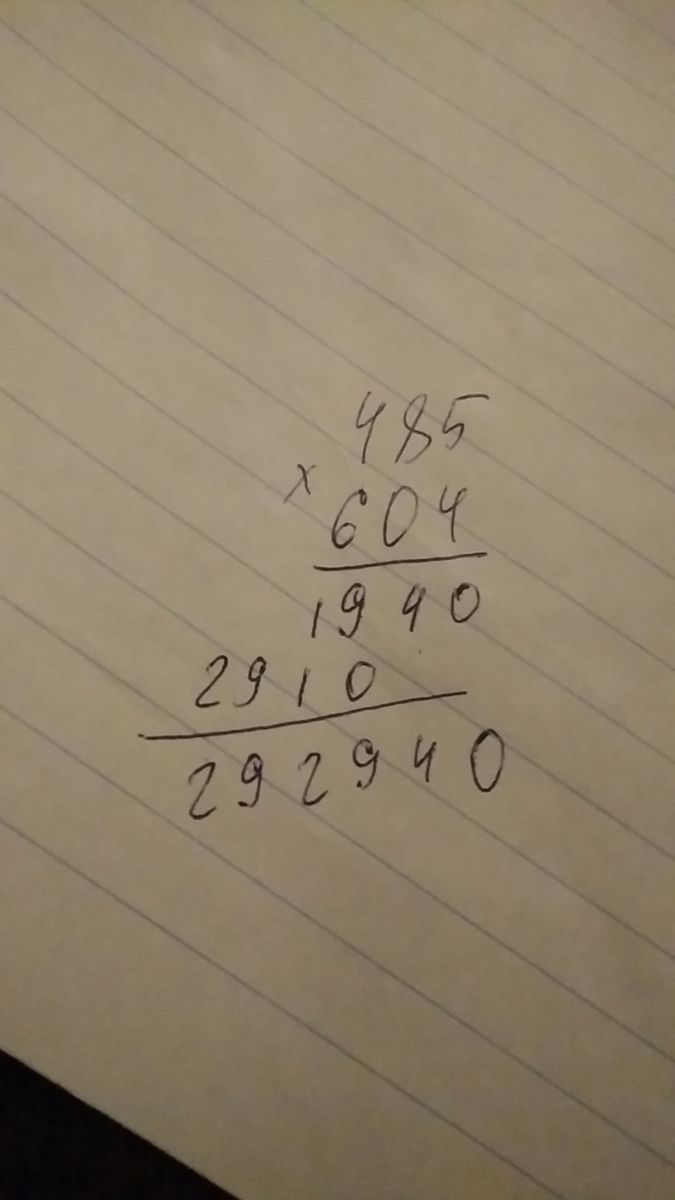 485
×
604
1940
2910
292940